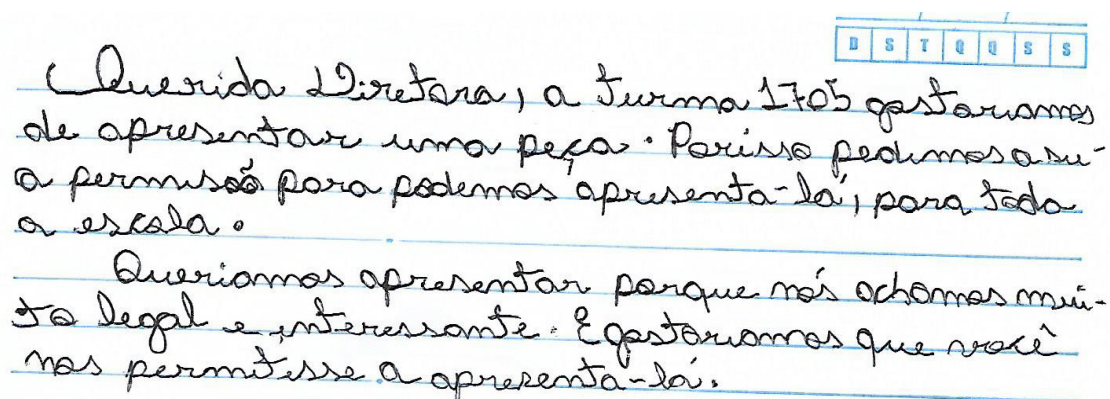 D S T Q Q S S
Querida Diretora, a turma 1705 gostariamos
de apresentar uma peça. Porisso pedimos a su-
a permisão para podemos apresenta-lá, para toda
a escola.
Queriamos apresentar porque nós achamos mui-
to legal e interessante. E gostariamos que você
nos permitisse a apresenta-lá.